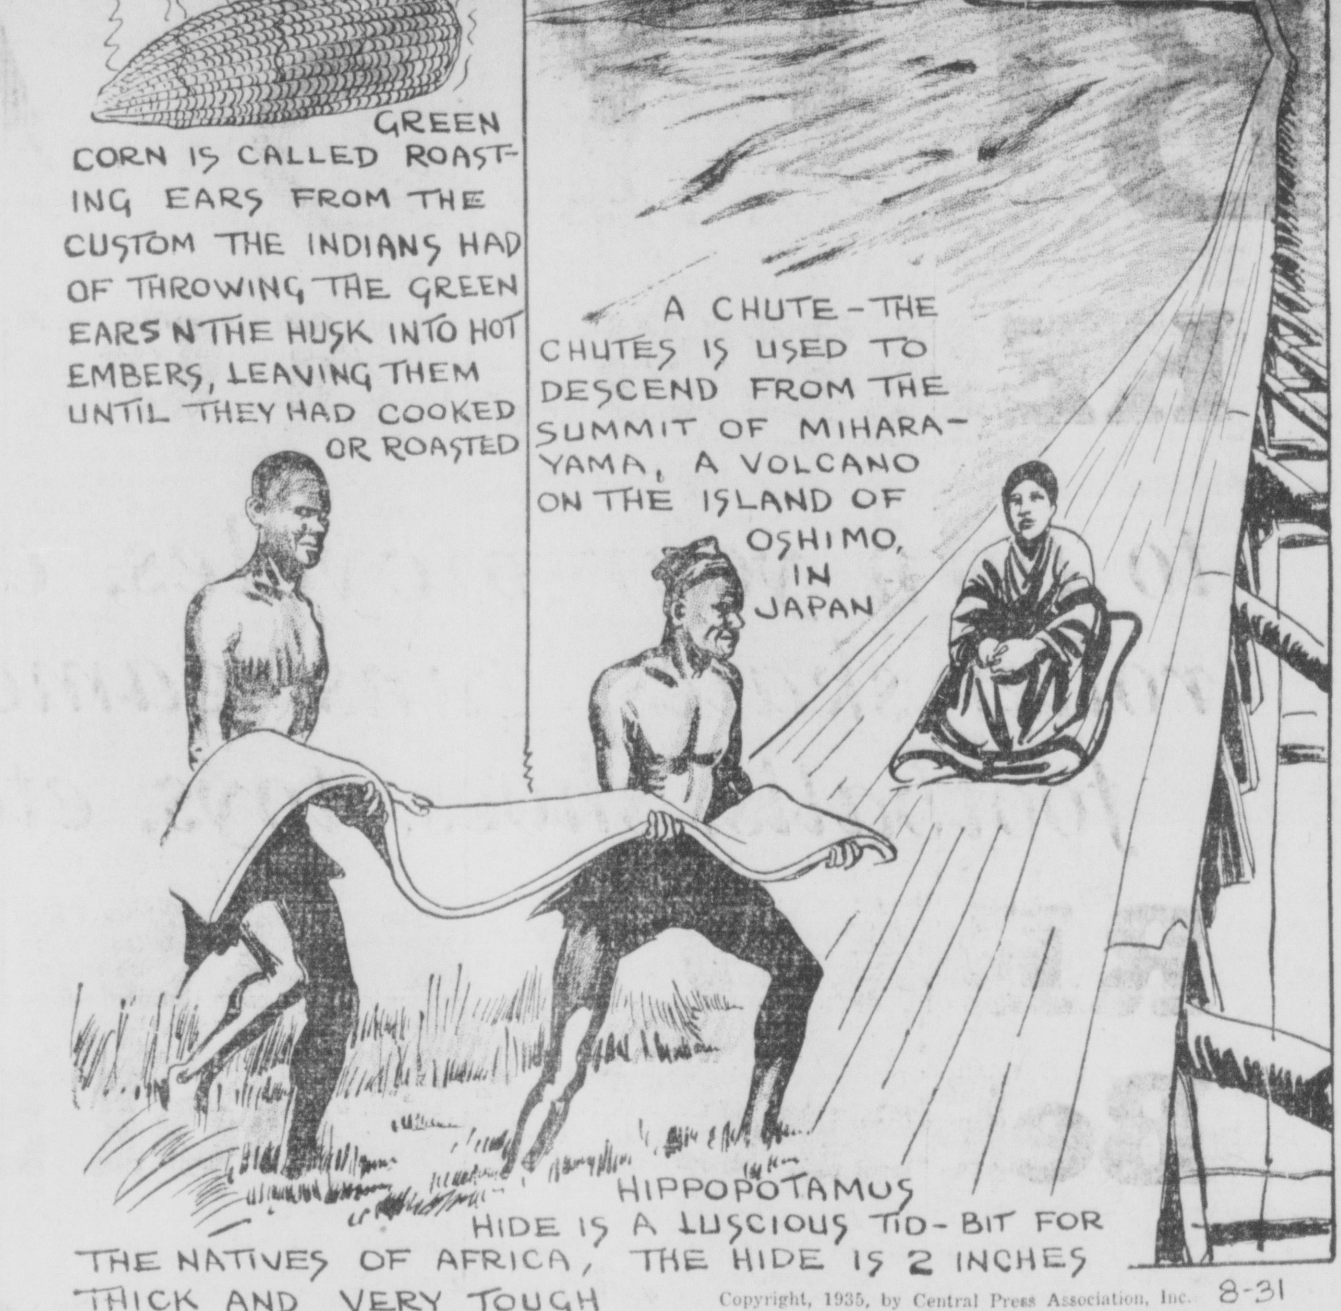 GREEN
CORN IS CALLED ROAST-
ING EARS FROM THE
CUSTOM THE INDIANS HAD
OF THROWING THE GREEN
EARS N THE HUSK INTO HOT
EMBERS, LEAVING THEM
UNTIL THEY HAD COOKED
OR ROASTED
A CHUTE - THE
CHUTES IS USED TO
DESCEND FROM THE
SUMMIT OF MIHARA-
YAMA, A VOLCANO
ON THE ISLAND OF
OSHIMO,
IN
JAPAN
HIPPOPOTAMUS
HIDE IS A LUSCIOUS TID-BIT FOR
THE NATIVES OF AFRICA, THE HIDE IS 2 INCHES
THICK AND VERY TOUGH
Copyright, 1935, by Central Press Association, Inc. 8-31